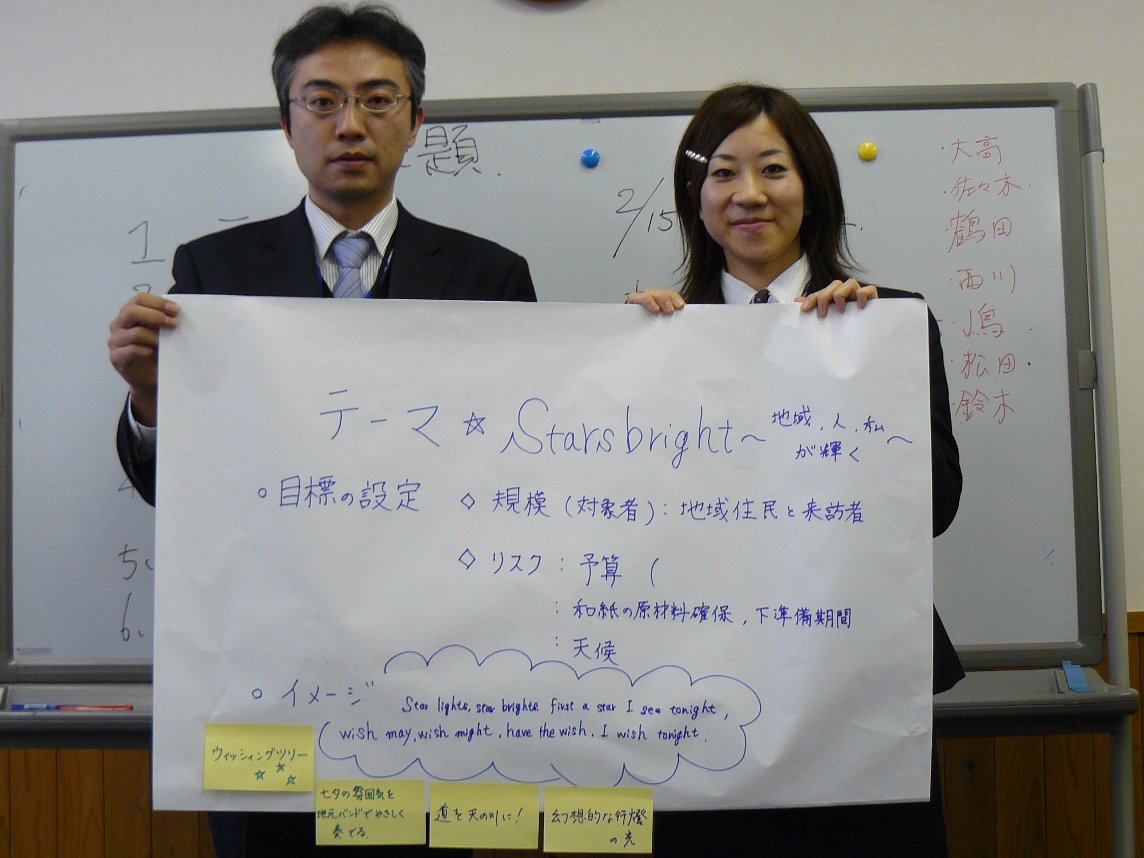 題.
1
2/15
5.
6.
・大高
・佐々木.
・鶴田
・西川
・嶋
・松田.
・鈴木
テーマ ☆ Starsbright～地域、人、私が輝く～
○ 目標の設定 ◇ 規模 (対象者) : 地域住民と来訪者
◇ リスク : 予算 (
: 和紙の原材料確保, 下準備期間
: 天候
○ イメージ
Star lights, star brights first a star I see tonight,
wish may, wish might, have the wish, I wish tonight.
ウィッシィングツリー
☆ ☆ ☆
七夕の雰囲気を
地元バンドでやさしく
奏でる.
道を天の川に!
幻想的な行燈
の光